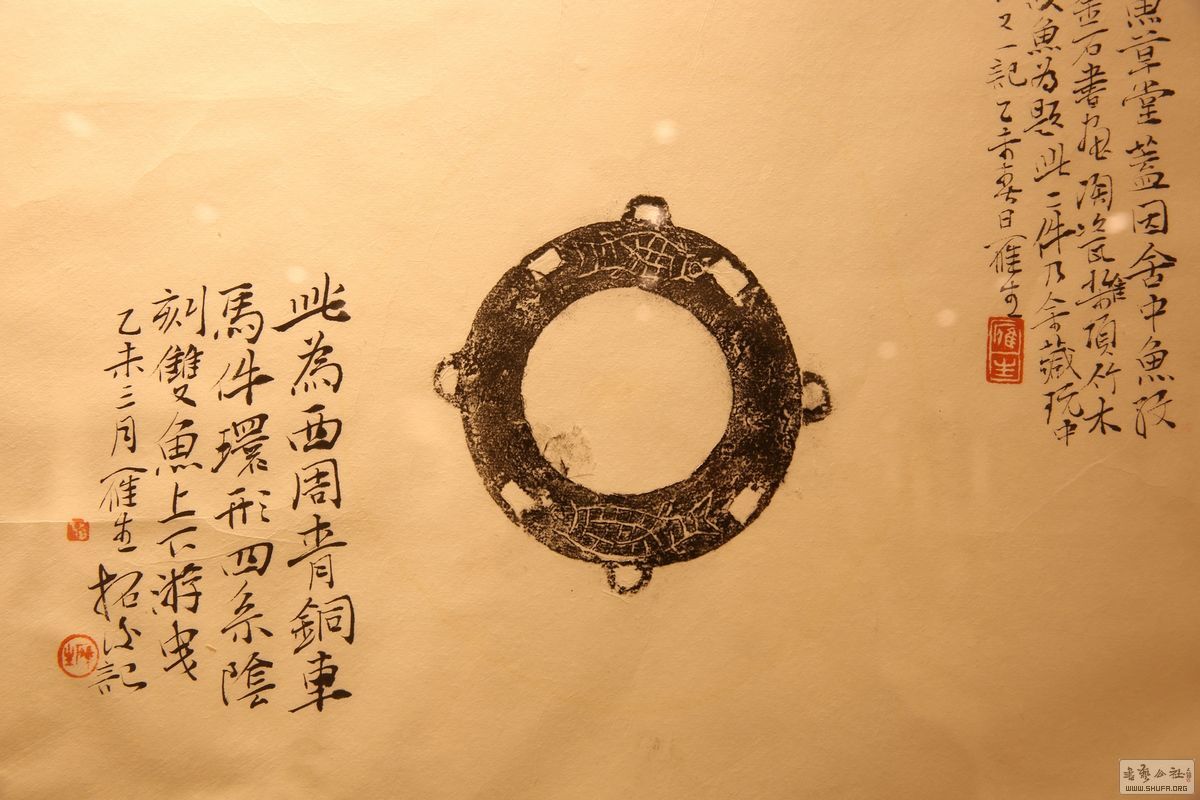 魚草堂蓋因舍中魚紋
金石書畫陶瓷雜項竹木
魚為題此二件乃余藏玩中
又一記乙未春日雁生
雁生
此為西周青銅車
馬件環形四系陰
刻雙魚上下游曳
乙未三月雁生拓后記
書藝公社
WWW.SHUFA.ORG